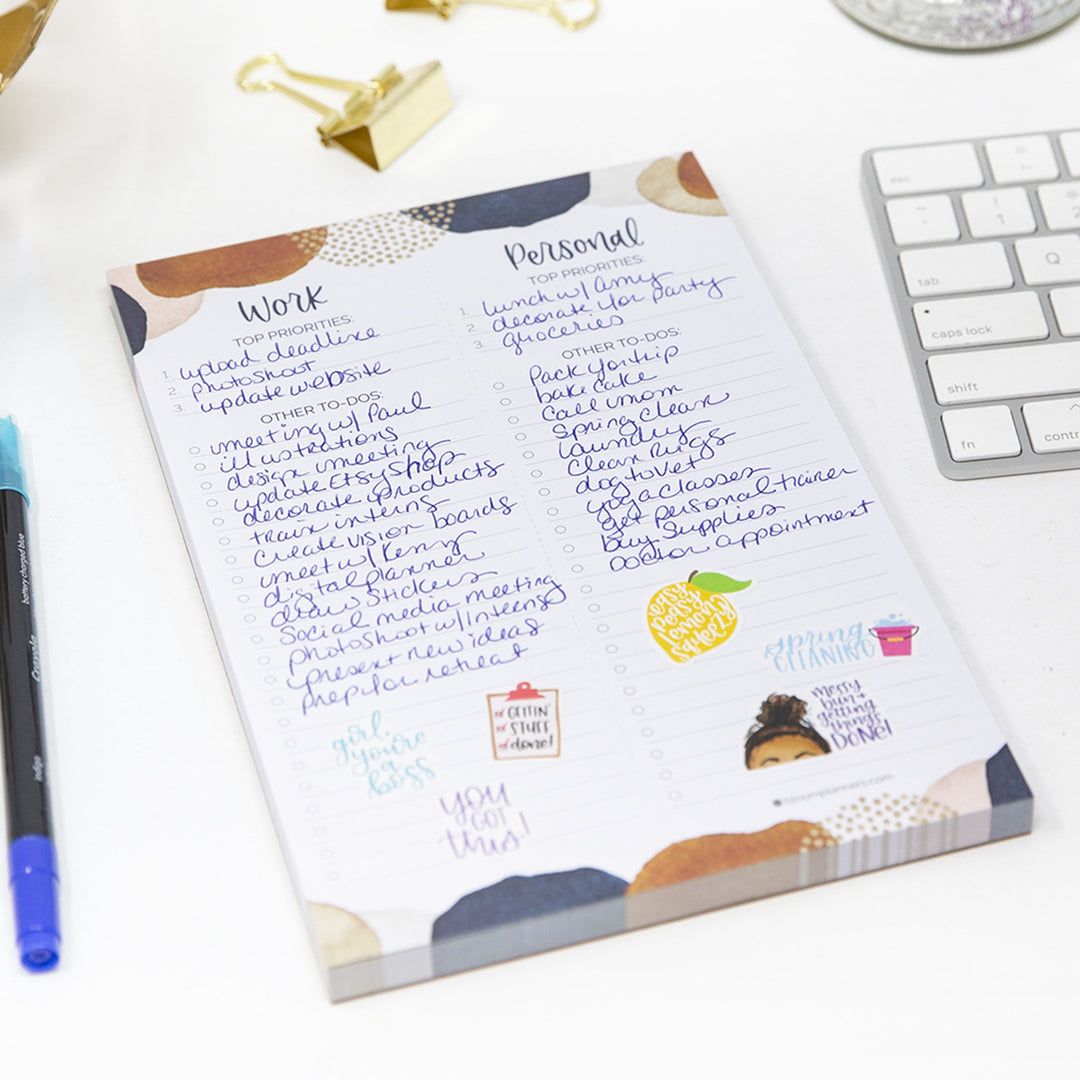 Work
TOP PRIORITIES:
1. upload deadline
2. photoshoot
3. update website
OTHER TO-DOS:
meeting w/ Paul
illustrations
design meeting
update Etsy shop
decorate products
train interns
create vision boards
meet w/ Kenny
digital planner
draw stickers
Social media meeting
photoshoot w/ Interns
present new ideas
prep for retreat
girl,
you're
a
boss
GETTIN'
STUFF
done!
YOU
GOT
this!
Personal
TOP PRIORITIES:
1. lunch w/ Amy
2. decorate for party
3. groceries
OTHER TO-DOS:
Pack for trip
bake cake
Call mom
Spring clean
laundry
Clean Rugs
dog to vet
yoga classes
get personal trainer
buy supplies
Doctor appointment
easy
peasy
lemon
squeezy
spring
CLEANING
messy
bun +
getting
things
DONE!
bloomplanners.com
esc
~
!
1
@
2
tab
Q
caps lock
shift
fn
contr
battery charged blue
Crayola
indigo